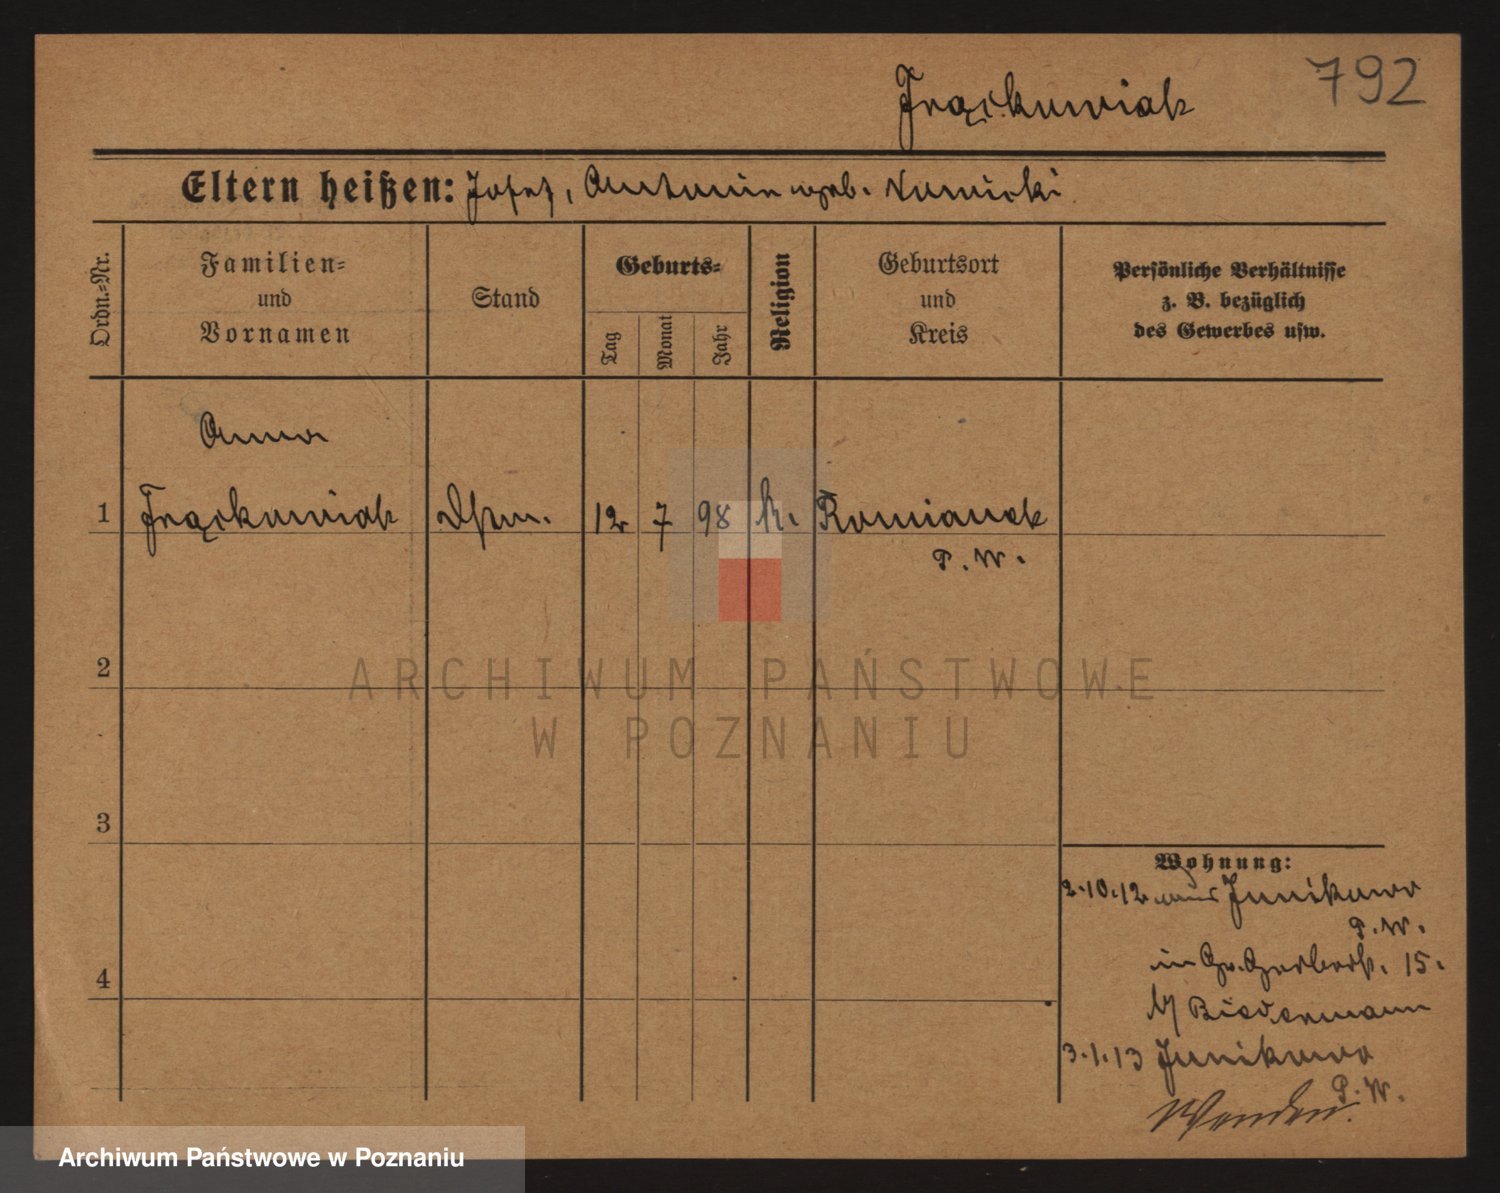 792
Frąckowiak
Eltern heißen: Josef, Antonie geb. Nowicki
Ordn.-Nr.
Familien-
und
Vornamen
Stand
Geburts-
Tag
Monat
Jahr
Religion
Geburtsort
und
Kreis
Persönliche Verhältnisse
z. B. bezüglich
des Gewerbes usw.
Anna
1 Frąckowiak Dstm. 12 7 98 k. Komianek
P. W.
2
3
4
Wohnung:
2.10.12 aus Junikowo
P. W.
in Gr. Gerberst. 15.
b/ Biedermann
3.1.13 Junikowo
P. W.
Wenden.
ARCHIWUM PAŃSTWOWE
W POZNANIU
Archiwum Państwowe w Poznaniu